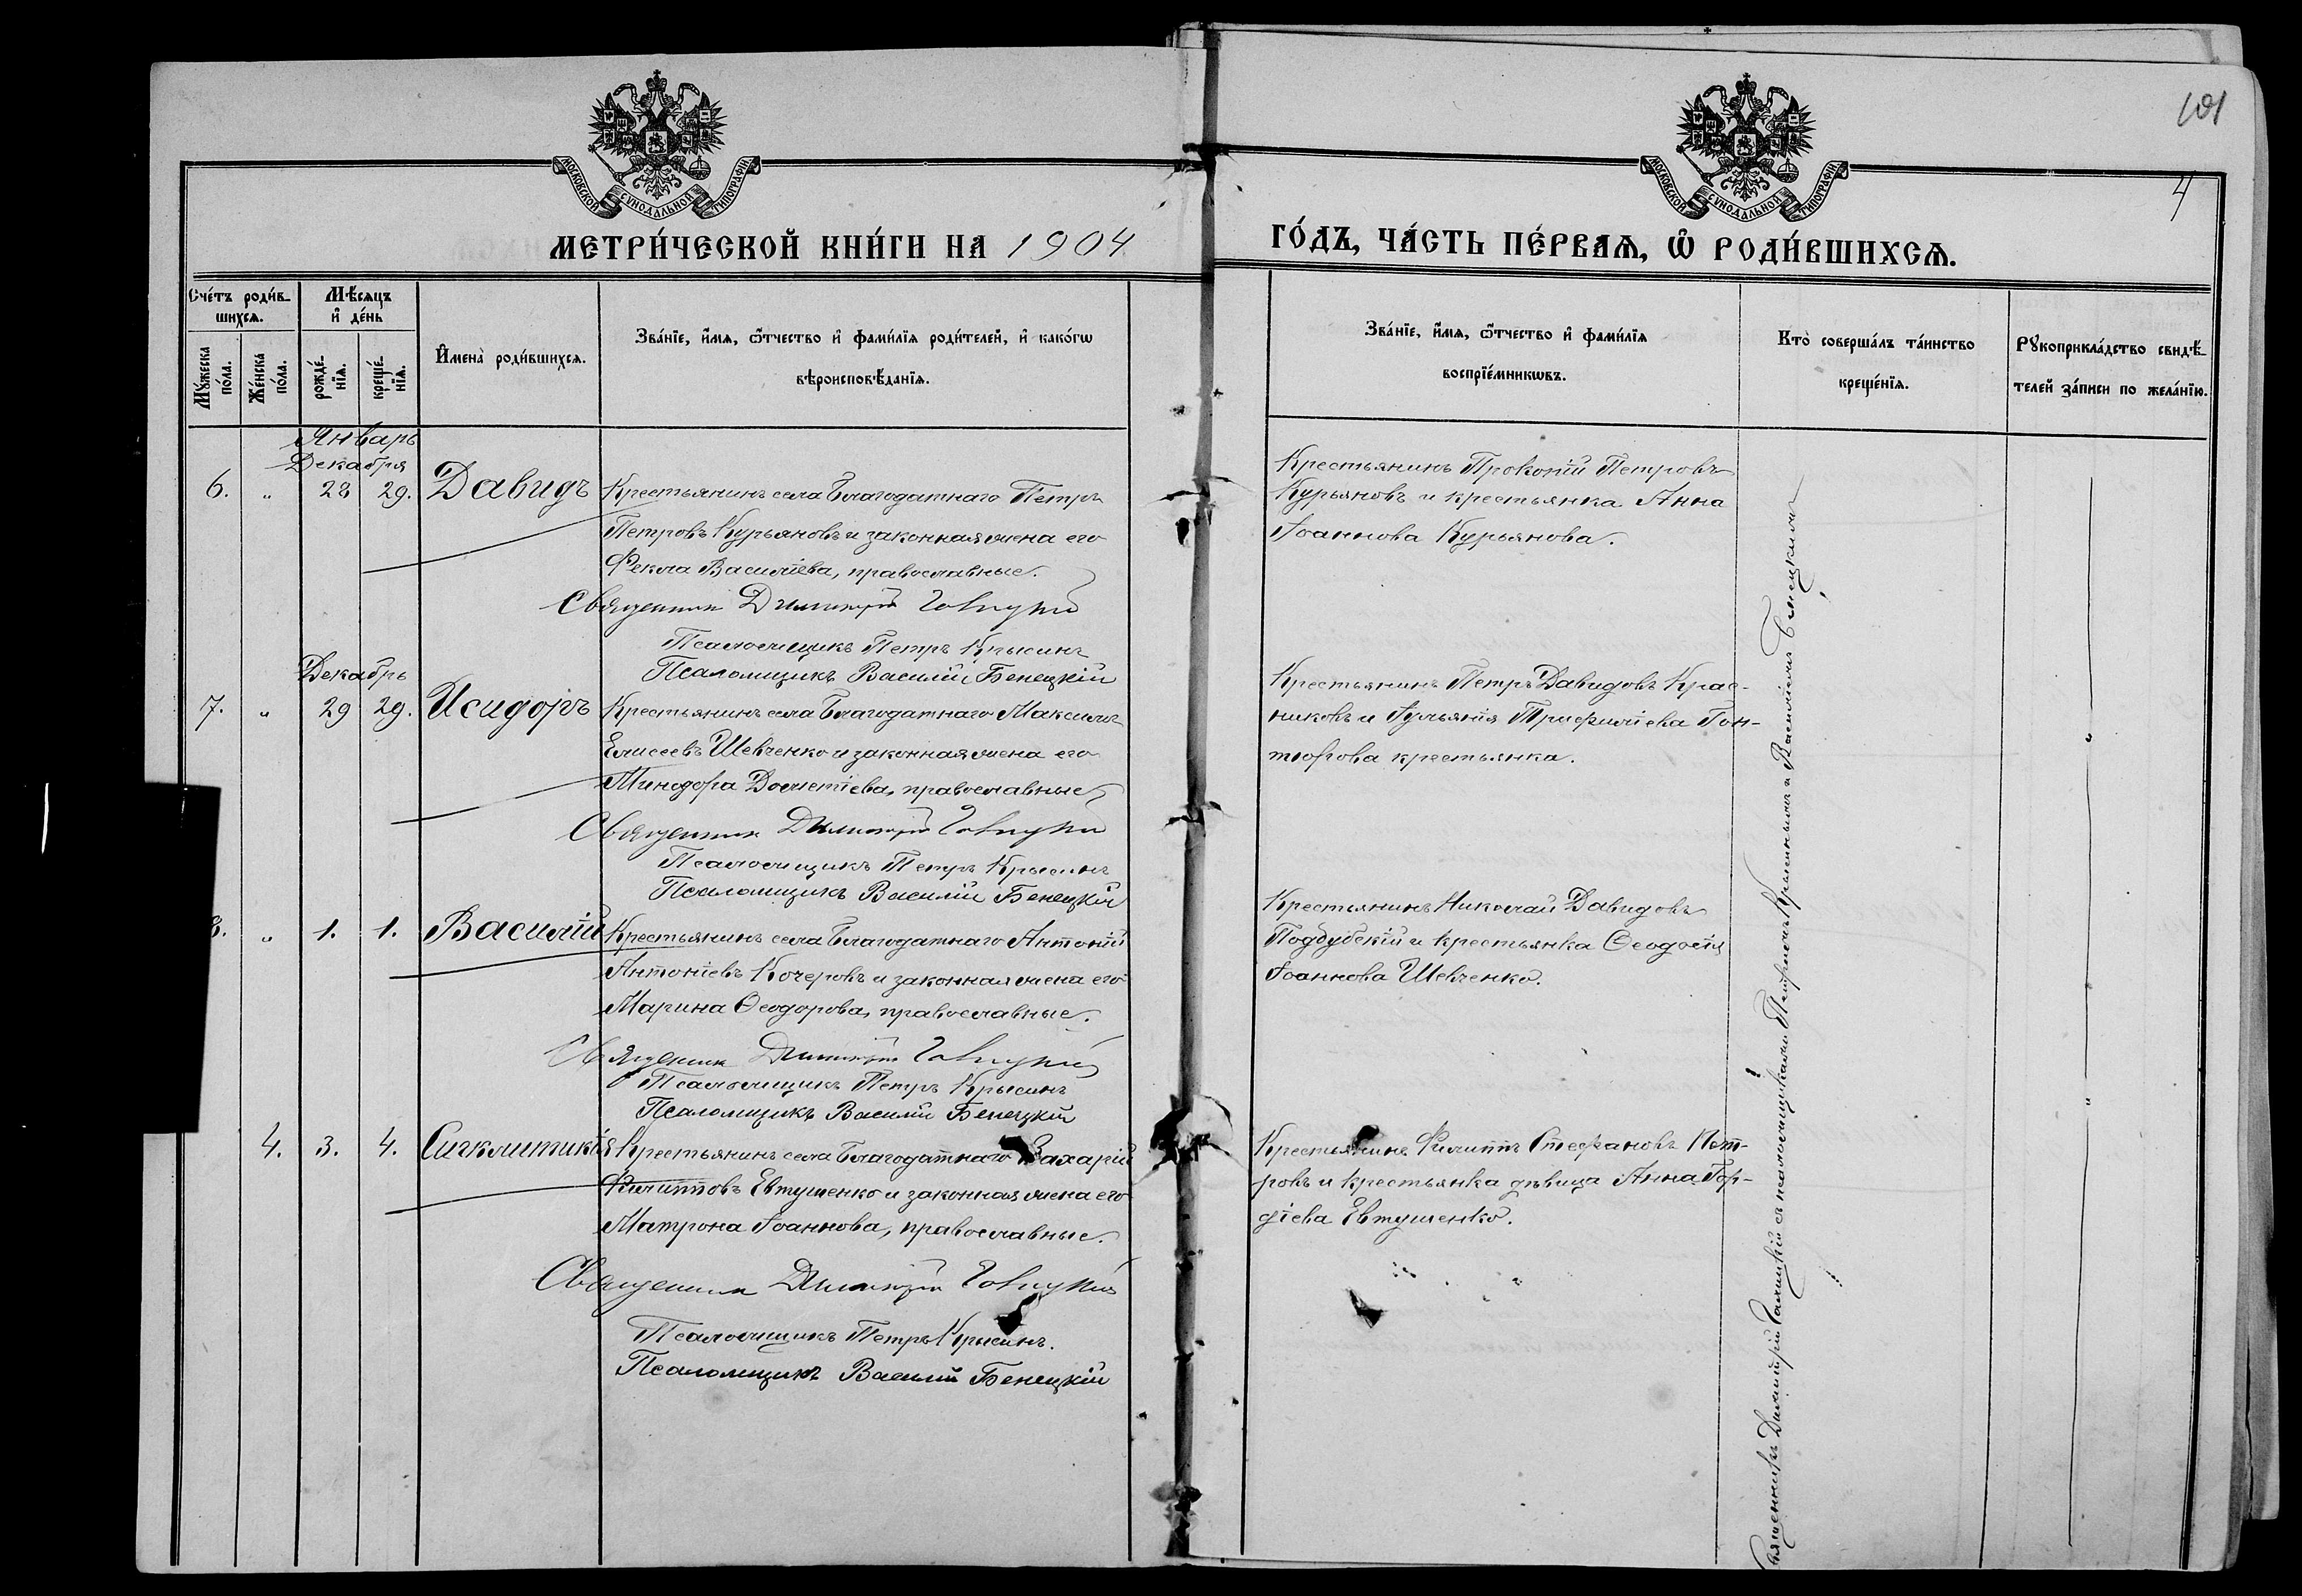 МОСКОВСКОЙ СѴНОДАЛЬНОЙ ТИПОГРАФІИ
МОСКОВСКОЙ СѴНОДАЛЬНОЙ ТИПОГРАФІИ
101
4
МЕТРИ́ЧЕСКОЙ КНИ́ГИ НА 1904
ГО́ДЪ, ЧА́СТЬ ПЕ́РВАѦ, Ѿ РОДИ́ВШИХСѦ.
Сче́тъ роди́в-
шихсѧ.
Мѣ́сѧцъ
и҆ де́нь
Мꙋ́жеска
по́ла.
Же́нска
по́ла.
рожде́-
нїѧ.
креще́-
нїѧ.
И҆мена̀ роди́вшихсѧ.
Зва́нїе, и҆́мѧ, ѻ҆́тчество и҆ фами́лїѧ роди́телей, и҆ како́гѡ
вѣроисповѣ́данїѧ.
Зва́нїе, и҆́мѧ, ѻ҆́тчество и҆ фами́лїѧ
воспрїе́мникѡвъ.
Кто̀ соверша́лъ та́инство
креще́нїѧ.
Рꙋкоприкла́дство свидѣ́-
телей за́писи по жела́нїю.
Январь
Декабря
6. " 28 29. Давидъ
Крестьянинъ села Благодатнаго Петръ
Петровъ Курьяновъ и законная жена его
Фекла Василіева, православные.
Священник Димитрій Галицкій
Псаломщикъ Петръ Крысинъ
Псаломщикъ Василій Бенецкій
Крестьянинъ Прокопій Петровъ
Курьяновъ и крестьянка Анна
Іоаннова Курьянова.
Декабрь
7. " 29 29. Исидоръ
Крестьянинъ села Благодатнаго Максимъ
Елисеевъ Шевченко и законная жена его
Минодора Дометіева, православные
Священник Димитрій Галицкій
Псаломщикъ Петръ Крысинъ
Псаломщикъ Василій Бенецкій
Крестьянинъ Петръ Давидовъ Крас-
никовъ и Іульянія Трифиліева Гон-
тюрова крестьянка.
8. " 1. 1. Василій
Крестьянинъ села Благодатнаго Антоній
Антоніевъ Кочеровъ и законная жена его
Марина Ѳеодорова, православные.
Священник Димитрій Галицкій
Псаломщикъ Петръ Крысинъ
Псаломщикъ Василій Бенецкій
Крестьянинъ Николай Давидовъ
Поддубскій и крестьянка Ѳеодосія
Іоаннова Шевченко.
4. 3. 4. Сигклитикія
Крестьянинъ села Благодатнаго Захарій
Филипповъ Евтушенко и законная жена его
Матрона Іоаннова, православные.
Священник Димитрій Галицкій
Псаломщикъ Петръ Крысинъ.
Псаломщикъ Василій Бенецкій
Крестьянинъ Филиппъ Стефановъ Пет-
ровъ и крестьянка дѣвица Анна Гор-
діева Евтушенко.
Священникъ Димитрій Галицкій съ псаломщиками Петромъ Крысинымъ и Василіемъ Бенецкимъ